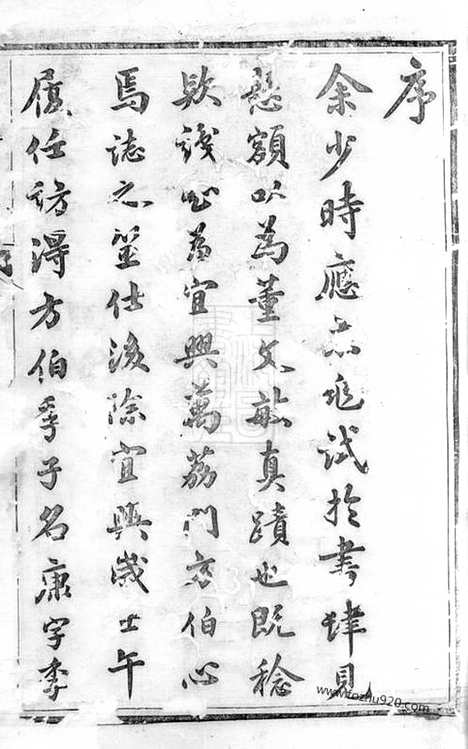 序
余少時應京兆試於書肆見
懸額以為董文敏真蹟也既稔
欵識為宜興萬荔門方伯心
焉誌之筮仕後除宜興歲壬午
履任訪得方伯季子名康字季
www.fozhu920.com